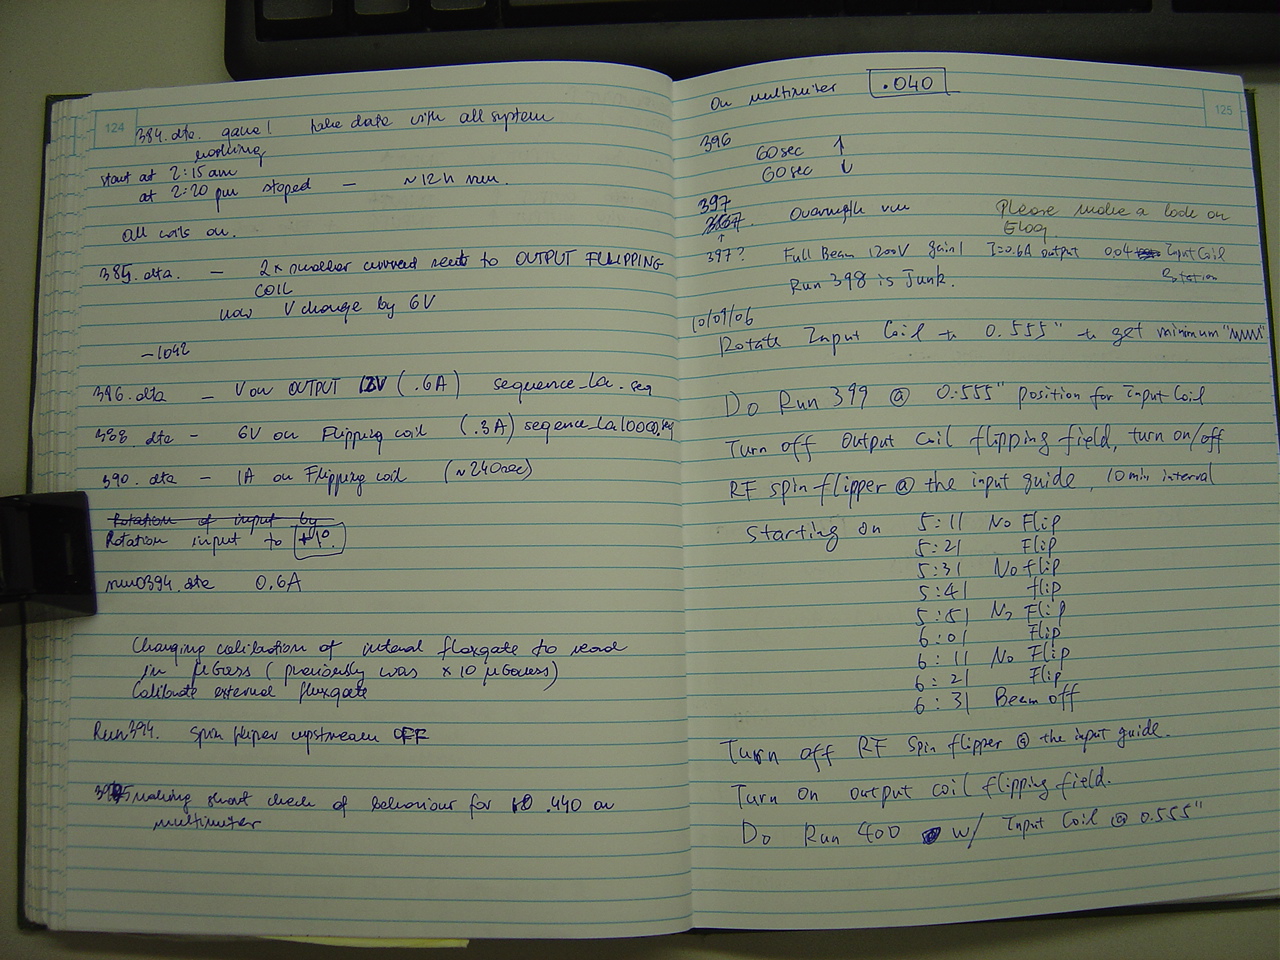 124
384.dta. gaue! take data with all system
working
start at 2:15am
at 2:20 pm stoped — ~12h run.
All coils on.
385.dta. — 2× smaller current sent to OUTPUT FLIPPING
COIL
now V change by 6V
-1042
386.dta — V on OUTPUT 12V (.6A) sequence_la.seq
388 dta — 6V on Flipping coil (.3A) seqence_la10000.seq
390.dta — 1A on Flipping coil (~240sec)
Rotation of input by
Rotation input to +1°.
run0394.dta 0.6A
Changing calibration of internal fluxgate to read
in μGauss (previously was ×10 μGauss)
Calibrate external fluxgate
Run394. Spin fliper upstream OFF
395 Making short check of behaviour for .440 on
multimeter
125
On multimeter .040
396
60sec ↑
60sec ↓
397
Overnight run Please make a look on
Elog.
397? Full Beam 1200V gain1 I=0.6A output 0.04 Input Coil
Rotation
Run 398 is Junk.
10/09/06
Rotate Input Coil to 0.555" to get minimum
Do Run 399 @ 0.555" position for Input Coil
Turn off Output coil flipping field, turn on/off
RF spin flipper @ the input guide, 10min interval
Starting on 5:11 No Flip
5:21 Flip
5:31 No flip
5:41 flip
5:51 No Flip
6:01 Flip
6:11 No Flip
6:21 Flip
6:31 Beam off
Turn off RF Spin flipper @ the input guide.
Turn On output coil flipping field.
Do Run 400 w/ Input Coil @ 0.555"